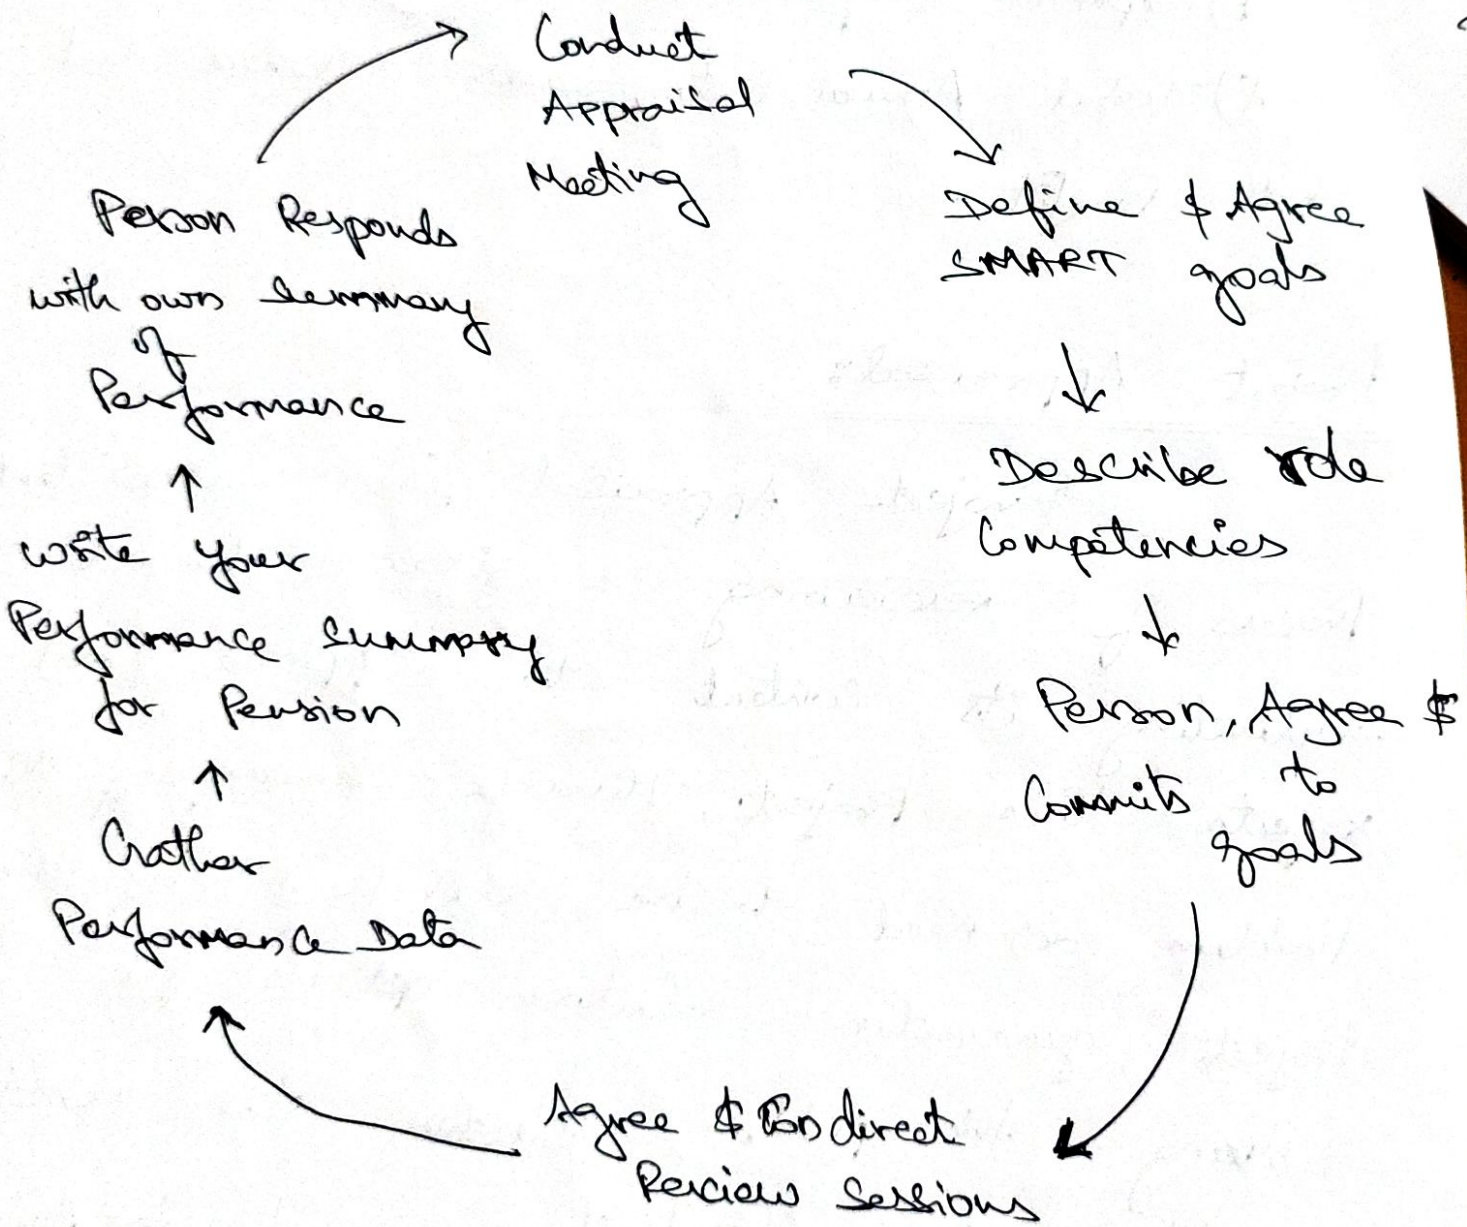 Conduct
Appraisal
Meeting
Define & Agree
SMART goals
Describe role
Competencies
Person, Agree &
Commits to
goals
Agree & Condirect
Review Sessions
Gather
Performance Data
write your
Performance summary
for Pension
Person Responds
with own Summary
of
Performance